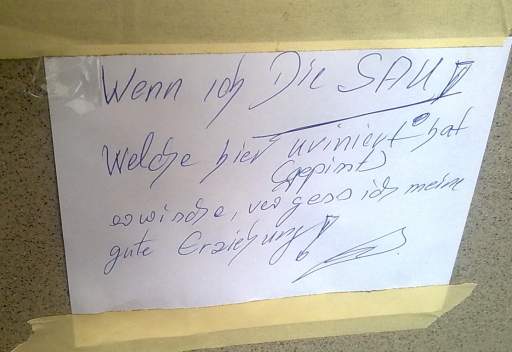 Wenn ich Die SAU!
Welche hier uriniert hat
(gepinst)
erwische, vergess ich meine
gute Erziehung!